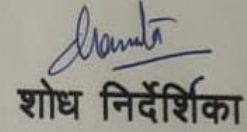 शोध निर्देशिका